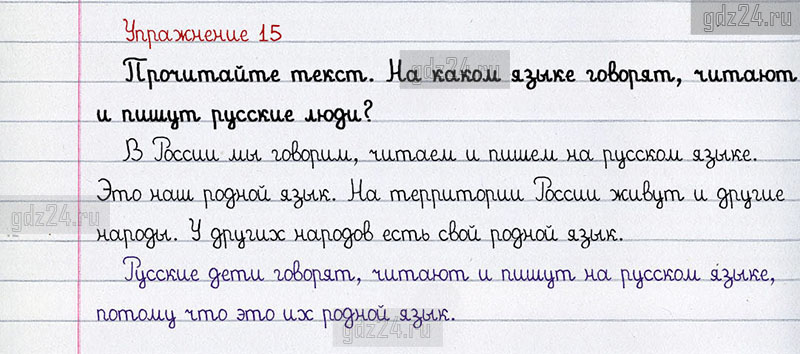 gdz24.ru
Упражнение 15
Прочитайте текст. На каком языке говорят, читают
gdz24.ru
и пишут русские люди?
В России мы говорим, читаем и пишем на русском языке.
Это наш родной язык. На территории России живут и другие
gdz24.ru
народы. У других народов есть свой родной язык.
Русские дети говорят, читают и пишут на русском языке,
потому что это их родной язык.
gdz24.ru